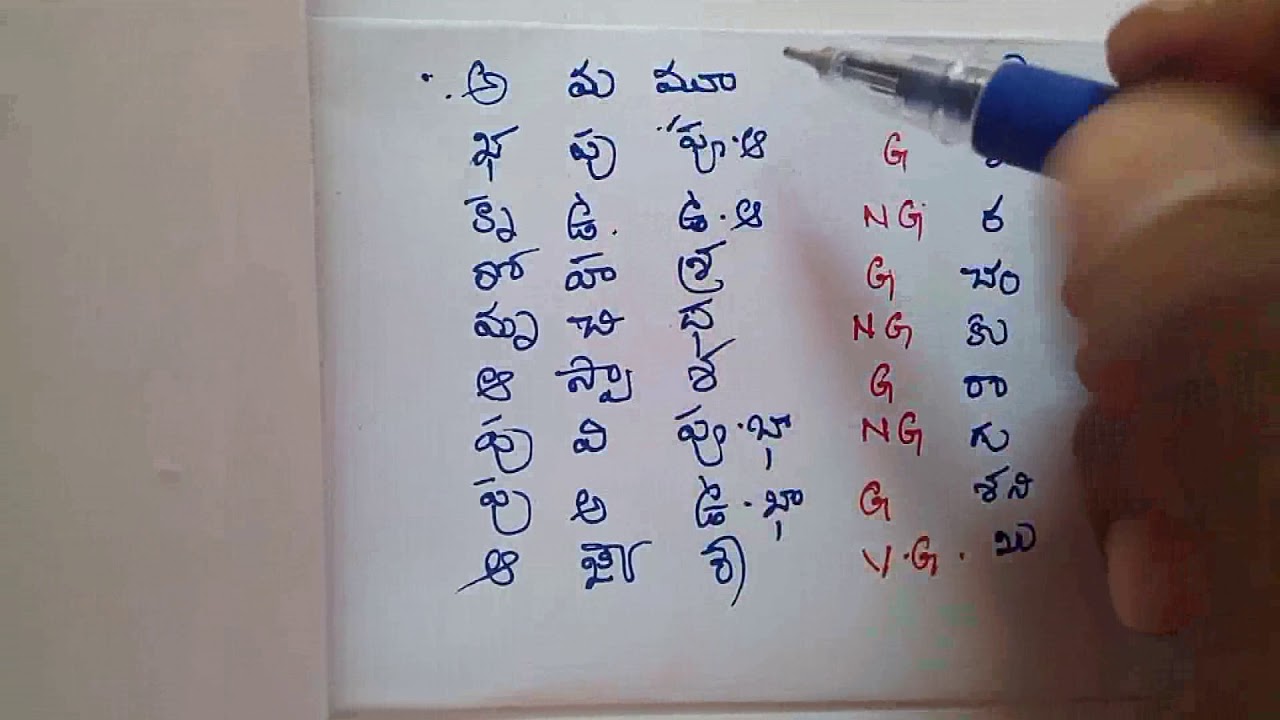 అ మ మూ
భ పు పూ.ఆ G
కృ ఉ. ఉ.ఆ NG ర
రో హ శ్ర G చం
మృ చి ధ NG కు
ఆ స్వా శ G రా
పు వి పూ.భా NG గు
పు అ ఉ.భా G శని
ఆ జ్యే రే V.G. బు